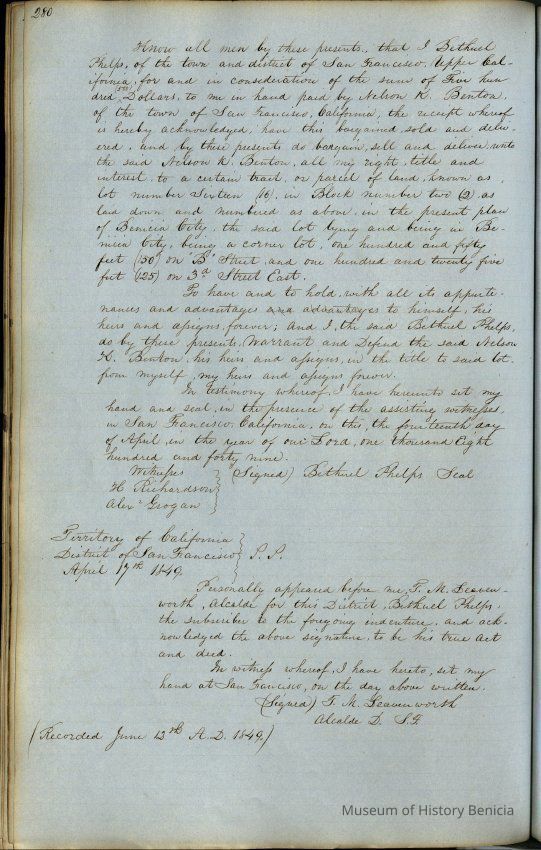 280
Know all men by these presents, that I Bethuel
Phelps, of the town and district of San Francisco, Upper Cal-
ifornia, for and in consideration of the sum of Five hun
dred (500) Dollars, to me in hand paid by Nelson K. Benton,
of the town of San Francisco, California, the receipt whereof
is hereby acknowledged, have this bargained sold and deliv-
ered, and by these presents do bargain, sell and deliver, unto
the said Nelson K. Benton, all my right, title and
interest, to a certain tract, or parcel of land, known as,
lot number Sixteen (16), in Block number two (2), as
laid down and numbered as above, in the present plan
of Benicia City, the said lot lying and being in Be-
nicia City, being a corner lot, one hundred and fifty
feet (150) on "B" Street, and one hundred and twenty five
feet (125) on 3rd Street East.
To have and to hold, with all its appurte-
nances and advantages and advantages to himself, his
heirs and assigns, forever; And I, the said Bethuel Phelps,
do by these presents, Warrant and Defend the said Nelson
K. Benton, his heirs and assigns, in the title to said lot,
from myself, my heirs and assigns forever.
In testimony whereof, I have hereunto set my
hand and seal, in the presence of the assisting witnesses,
in San Francisco, California, on this, the fourteenth day
of April, in the year of our Lord, one thousand Eight
hundred and forty nine.
Witness (Signed) Bethuel Phelps Seal
H Richardson
Alexr Grogan
Territory of California
District of San Francisco S. S.
April 17th 1849.
Personally appeared before me, T. M. Leaven-
worth, Alcalde for this District, Bethuel Phelps,
the subscriber to the foregoing indenture, and ack-
nowledged the above signature, to be his true act
and deed.
In witness whereof, I have hereto, set my
hand at San Francisco, on the day above written.
(Signed) T. M. Leavenworth
Alcalde D. S. F.
(Recorded June 13th A. D. 1849.)
Museum of History Benicia